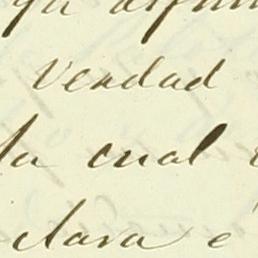 verdad
la cual
clara e